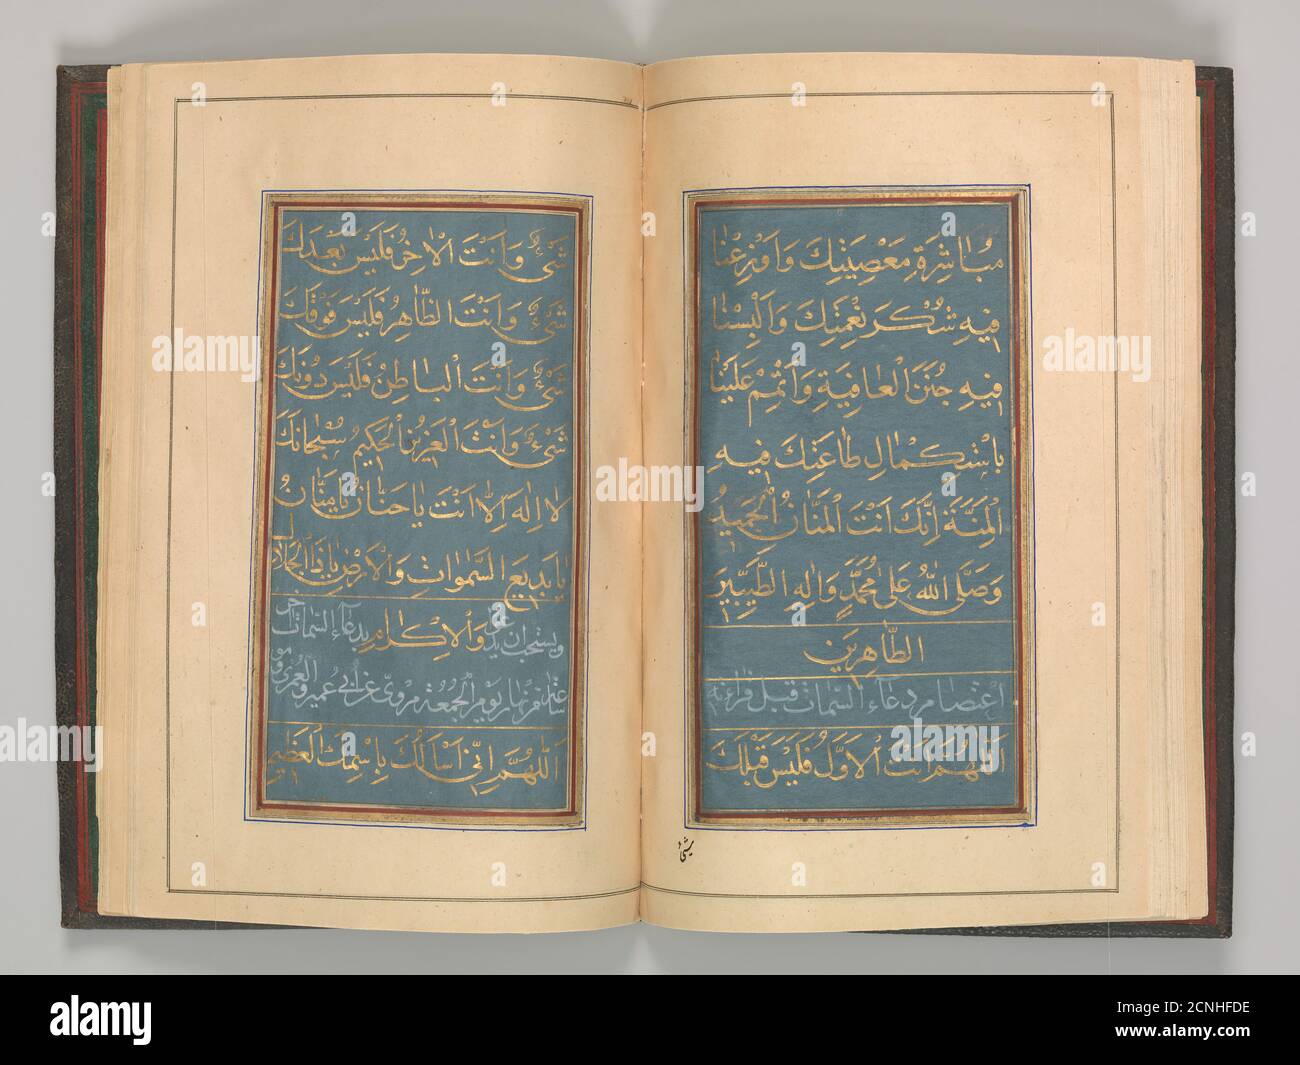 مُبَاشِرَةِ مَعْصِيَتِكَ وَاَوْزِعْنٰا
فيهِ شُكْرَ نِعْمَتِكَ وَاَلْبِسْنٰا
فيهِ جُنَنَ الْعٰافِيَةِ وَاَتْمِمْ عَلَيْنٰا
بِاسْتِكْمٰالِ طٰاعَتِكَ فيهِ
الْمِنَّةَ اِنَّكَ اَنْتَ الْمَنّٰانُ الْحَميدُ
وَصَلَّى اللهُ عَلىٰ مُحَمَّدٍ وَاٰلِهِ الطَّيِّبينَ
الطّٰاهِرينَ
دعاء السمات قبل قراءته
اَللّٰهُمَّ اَنْتَ الْاَوَّلُ فَلَيْسَ قَبْلَكَ
شَيْءٌ
شَيْءٌ وَاَنْتَ الْاٰخِرُ فَلَيْسَ بَعْدَكَ
شَيْءٌ وَاَنْتَ الظّٰاهِرُ فَلَيْسَ فَوْقَكَ
شَيْءٌ وَاَنْتَ الْبٰاطِنُ فَلَيْسَ دُونَكَ
شَيْءٌ وَاَنْتَ الْعَزيزُ الْحَكيمُ سُبْحٰانَكَ
لٰا اِلٰهَ اِلّٰا اَنْتَ يٰا حَنّٰانُ يٰا مَنّٰانُ
يٰا بَديعَ السَّمٰوٰاتِ وَالْاَرْضِ يٰا ذَا الْجَلٰالِ
وَالْاِكْرٰامِ ويستحب ان بدعاء السمات
من نهار يوم الجمعة مروي عن ابي عمرو العمري
اَللّٰهُمَّ اِنّي اَسْاَلُكَ بِاسْمِكَ الْعَظيمِ
alamy
Image ID: 2CNHFDE
www.alamy.com